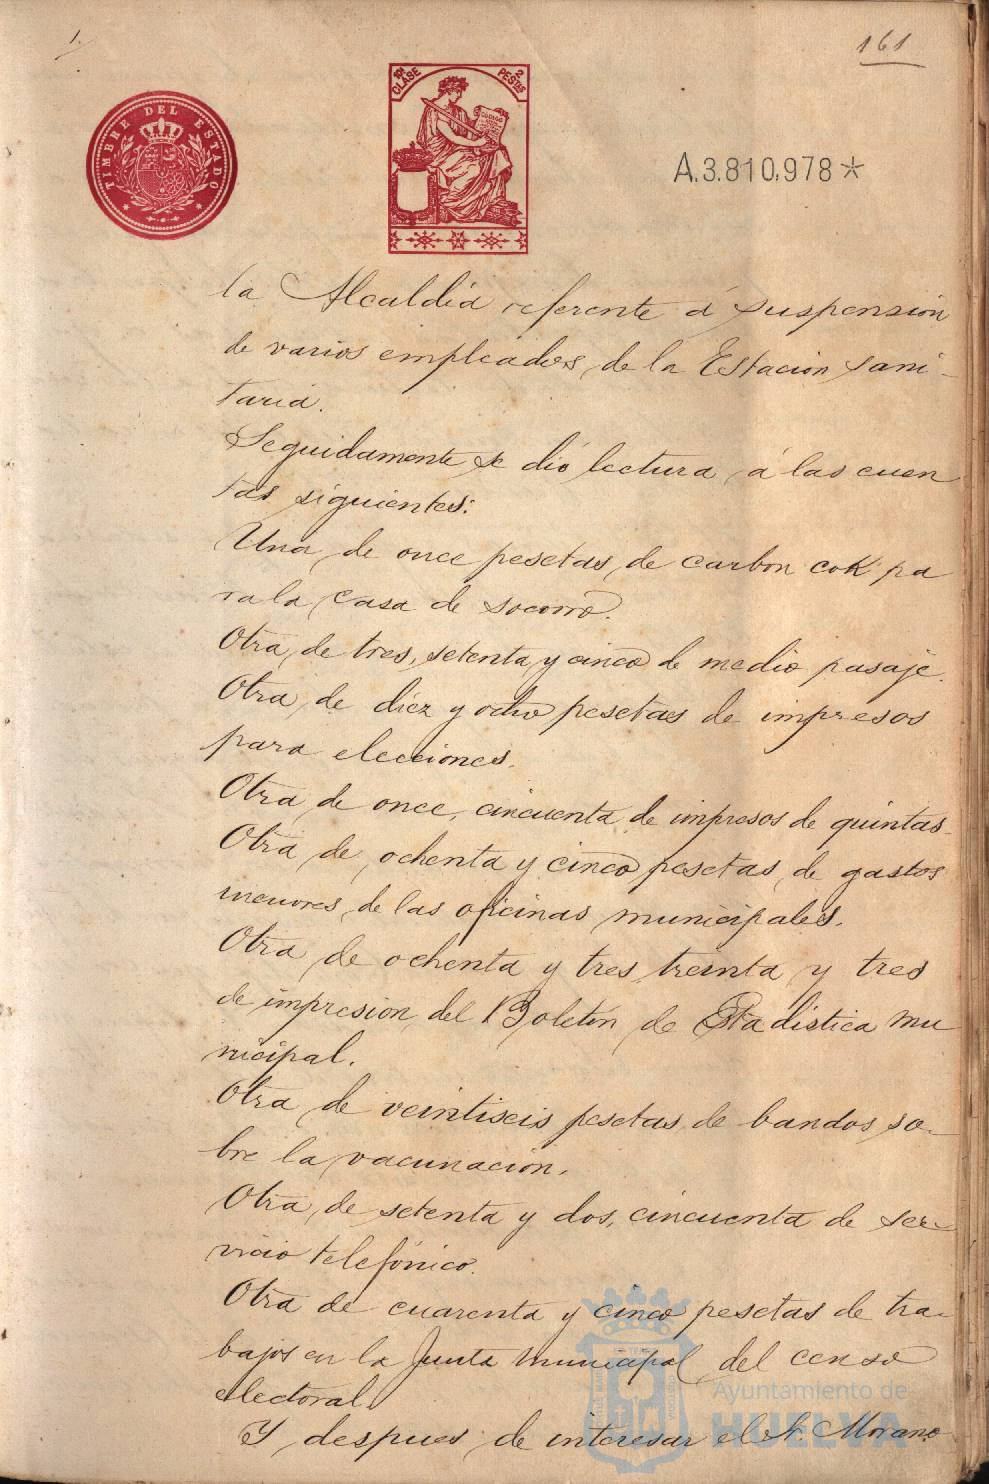 1.
161
TIMBRE DEL ESTADO
10ª CLASE
2 PESTAS
CODIGO
A.3.810,978*
la Alcaldia referente á suspension
de varios empleados de la Estacion sani-
taria.
Seguidamente se dió lectura á las cuen
tas siguientes:
Una de once pesetas de carbon cok pa
ra la Casa de socorro.
Otra de tres, setenta y cinco de medio pasaje.
Otra de diez y ocho pesetas de impresos
para elecciones.
Otra de once, cincuenta de impresos de quintas.
Otra de ochenta y cinco pesetas de gastos
menores de las oficinas municipales.
Otra de ochenta y tres treinta y tres
de impresion del Boletin de Estadistica mu
nicipal.
Otra de veintiseis pesetas de bandos so-
bre la vacunacion.
Otra de setenta y dos, cincuenta de ser-
vicio telefónico.
Otra de cuarenta y cinco pesetas de tra-
bajos en la Junta municipal del censo
electoral.
Y despues de interesar el Sr. Morano
Ayuntamiento de
HUELVA